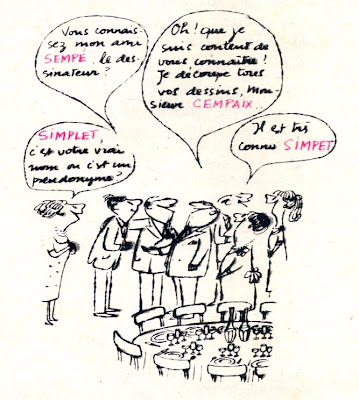 Vous connais-
sez mon ami
SEMPÉ le des-
sinateur ?
Oh ! que je
suis content de
vous connaître !
Je découpe tous
vos dessins, mon
sieur CEMPAIX..
SIMPLET,
c'est votre vrai
nom ou c'est un
pseudonyme ?
Il est très
connu SIMPET